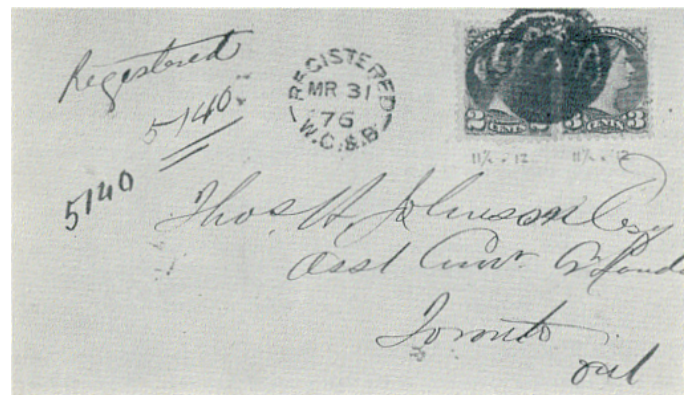 Registered
5140
5140
REGISTERED
MR 31
76
W.C.&B.
2 CENTS 2
3 CENTS 3
11½ . 12 11½ . 12
Thos. H. Johnson Esq
Asst
Toronto
Ont